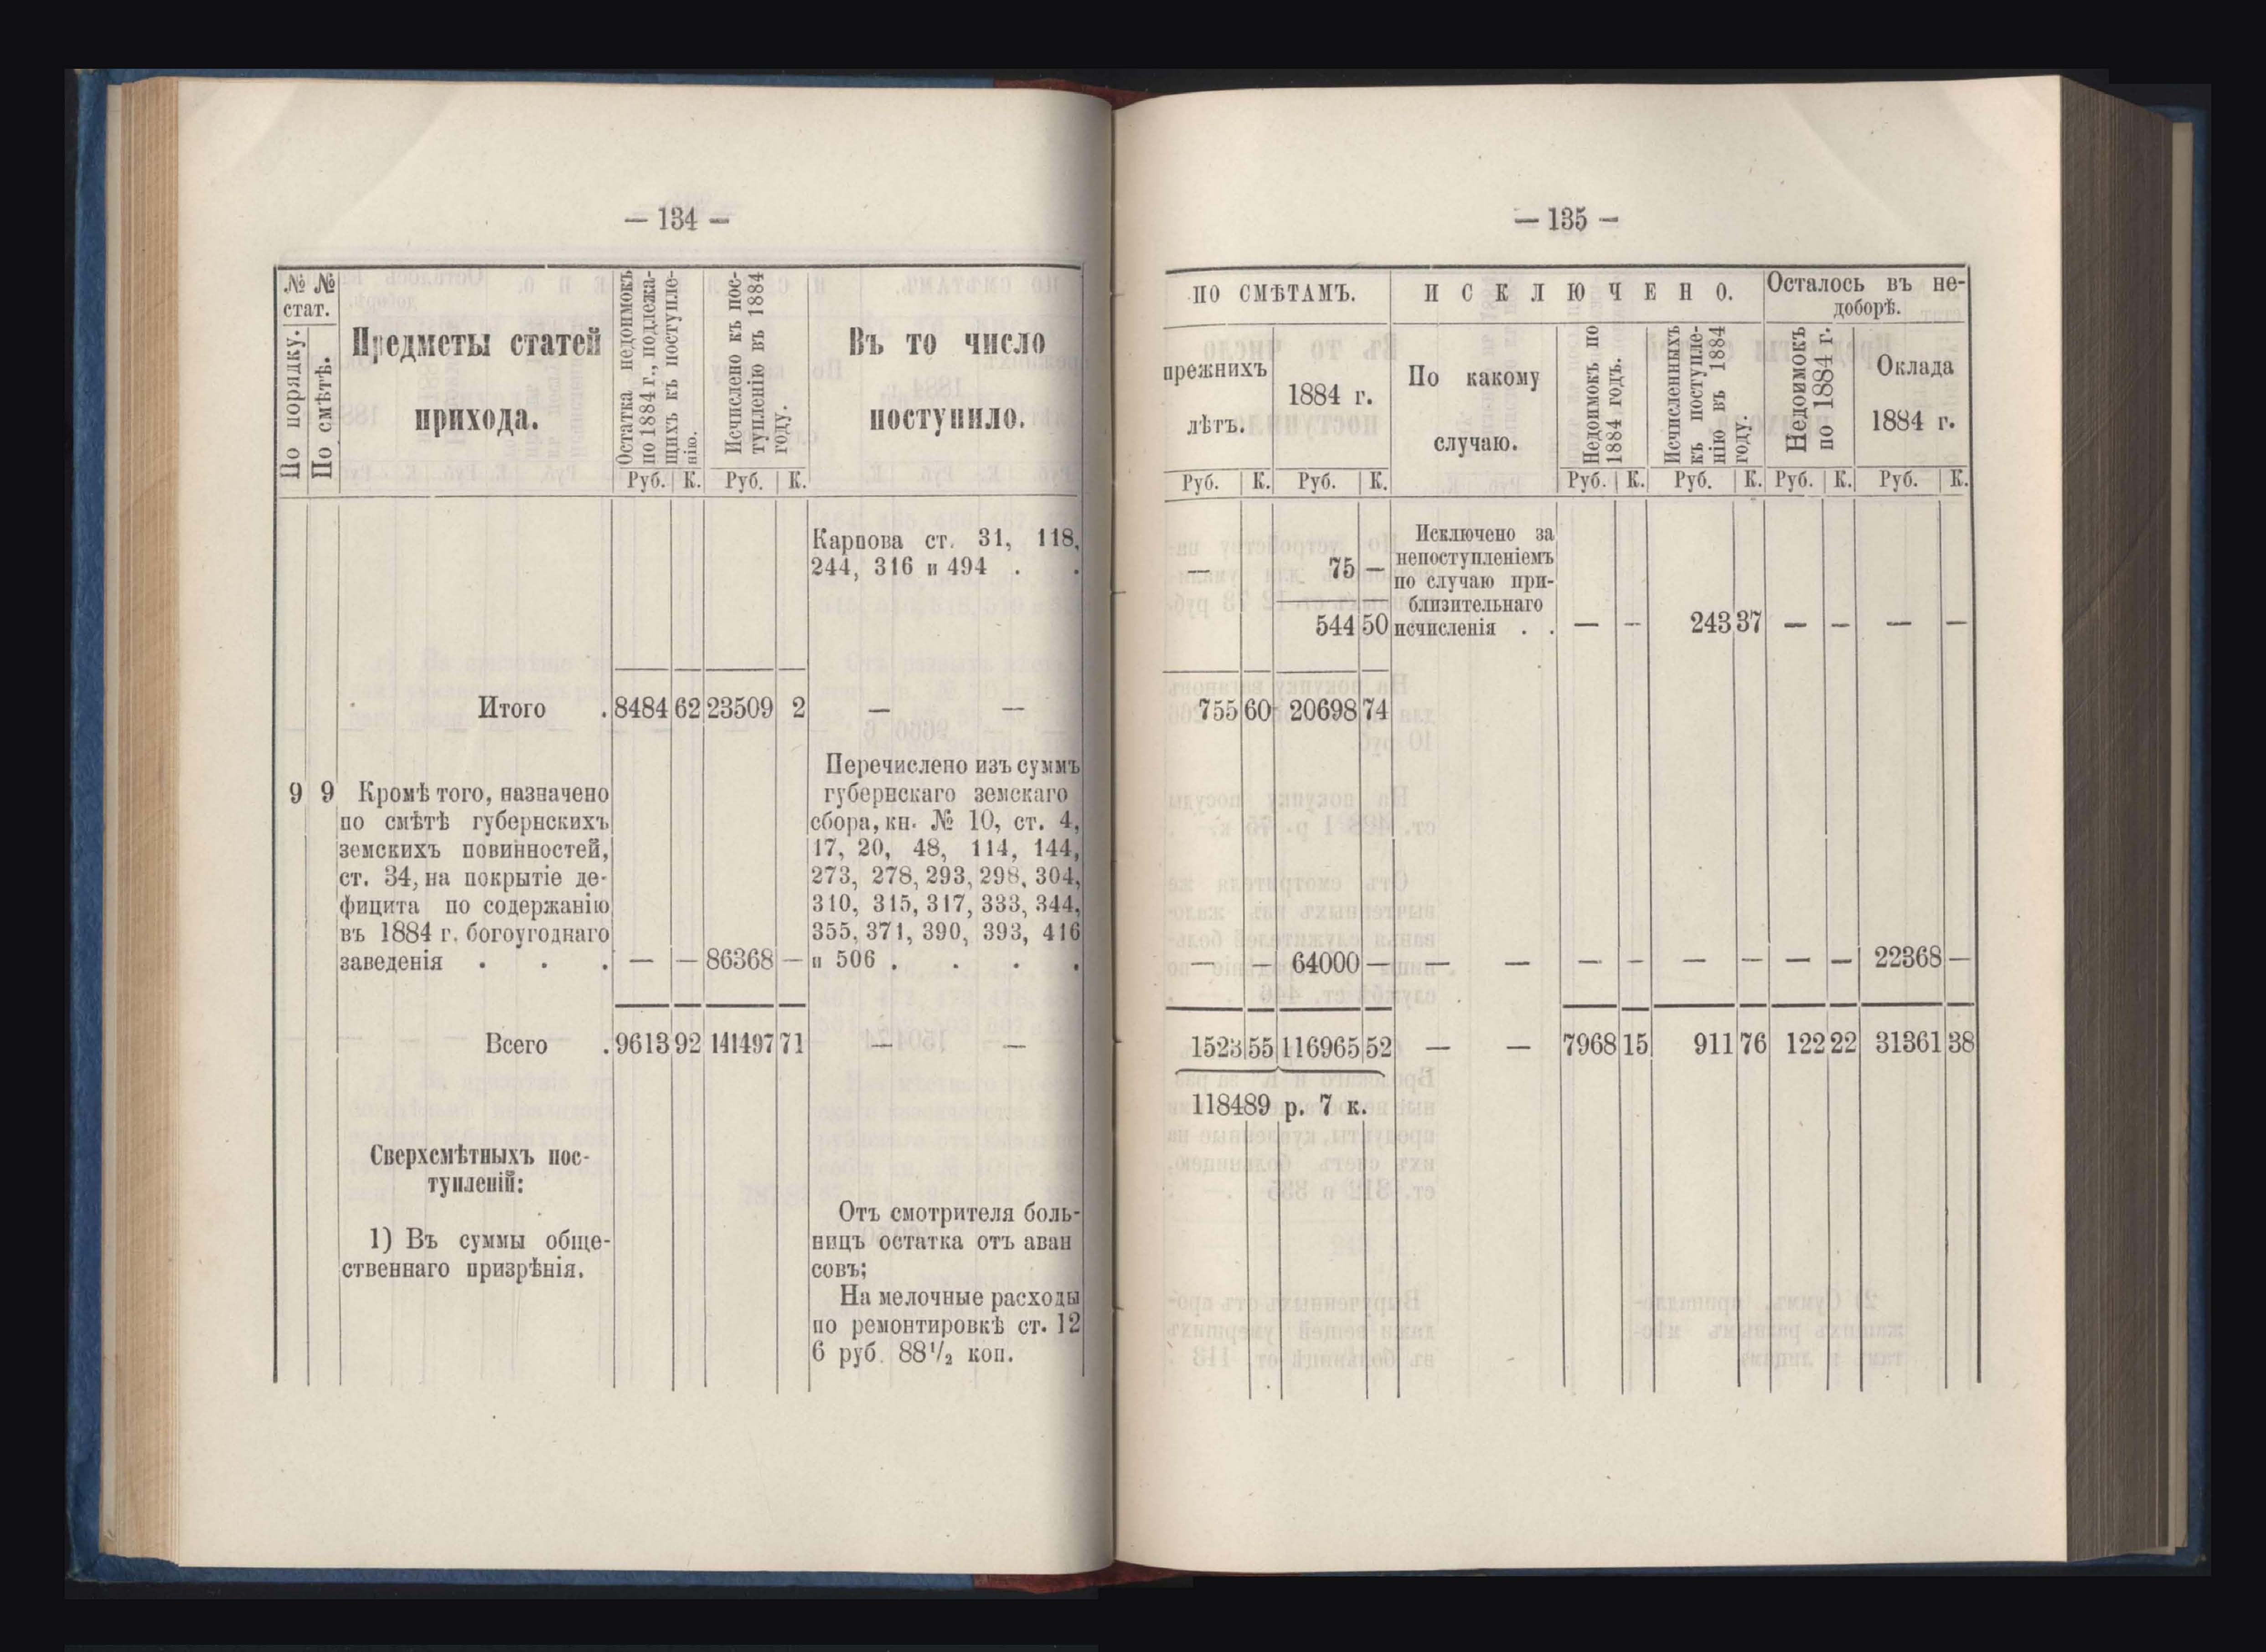 — 134 —
№ № стат.
По порядку.
По смѣтѣ.
Предметы статей
прихода.
Остатка недоимокъ
по 1884 г., подлежа-
щихъ къ поступле-
нію.
Исчислено къ пос-
тупленію въ 1884
году.
Въ то число
поступило.
Руб. К. Руб. К.
Карпова ст. 31, 118,
244, 316 и 494 . .
Итого . 8484 62 23509 2 — —
9 9 Кромѣ того, назначено
по смѣтѣ губернскихъ
земскихъ повинностей,
ст. 34, на покрытіе де-
фицита по содержанію
въ 1884 г. богоугоднаго
заведенія . . . — — 86368 —
Перечислено изъ суммъ
губернскаго земскаго
сбора, кн. № 10, ст. 4,
17, 20, 48, 114, 144,
273, 278, 293, 298, 304,
310, 315, 317, 333, 344,
355, 371, 390, 393, 416
и 506 . . . .
Всего . 9613 92 141497 71 — —
Сверхсмѣтныхъ пос-
тупленій:
1) Въ суммы обще-
ственнаго призрѣнія.
Отъ смотрителя боль-
ницъ остатка отъ аван
совъ;
На мелочные расходы
по ремонтировкѣ ст. 12
6 руб. 88¹/₂ коп.
— 135 —
ПО СМѢТАМЪ.
прежнихъ
лѣтъ.
1884 г.
ИСКЛЮЧЕНО.
По какому
случаю.
Недоимокъ по
1884 годъ.
Исчисленныхъ
къ поступле-
нію въ 1884
году.
Осталось въ не-
доборѣ.
Недоимокъ
по 1884 г.
Оклада
1884 г.
Руб. К. Руб. К. Руб. К. Руб. К. Руб. К. Руб. К.
— 75 —
544 50
Исключено за
непоступленіемъ
по случаю при-
близительнаго
исчисленія . . — — 243 37 — — — —
755 60 20698 74
— — 64000 — — — — — — — — — 22368 —
1523 55 116965 52 — — 7968 15 911 76 122 22 31361 38
118489 р. 7 к.